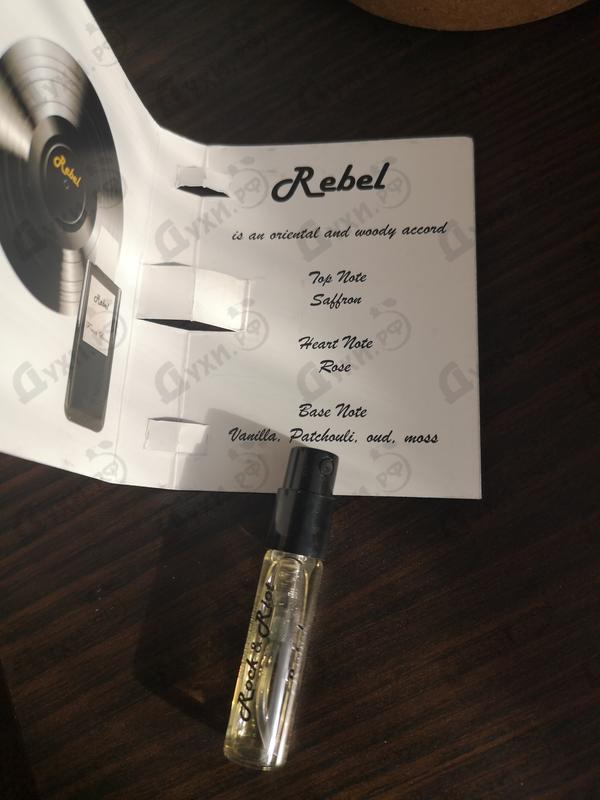 Rebel
Rebel
Rebel
is an oriental and woody accord
Top Note
Saffron
Heart Note
Rose
Base Note
Vanilla, Patchouli, oud, moss
Rock & Riot
Духи.рф